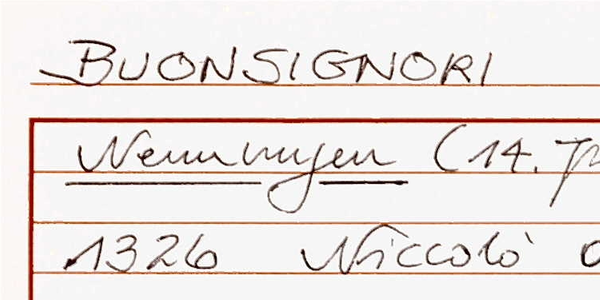 BUONSIGNORI
Nennungen (14.
1326 Niccolò